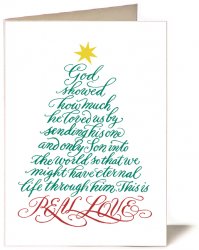 God
showed
how much
he loved us by
sending his one
and only Son into
the world so that we
might have eternal
life through him. This is
REAL LOVE